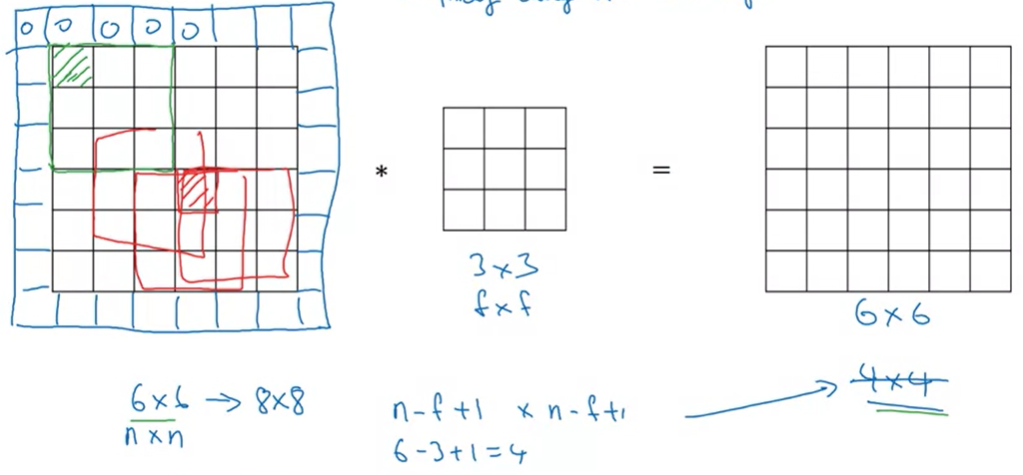 0 0 0 0 0
*
=
3×3
f×f
6×6
6×6 → 8×8
n×n
n-f+1 × n-f+1
6-3+1=4
4×4